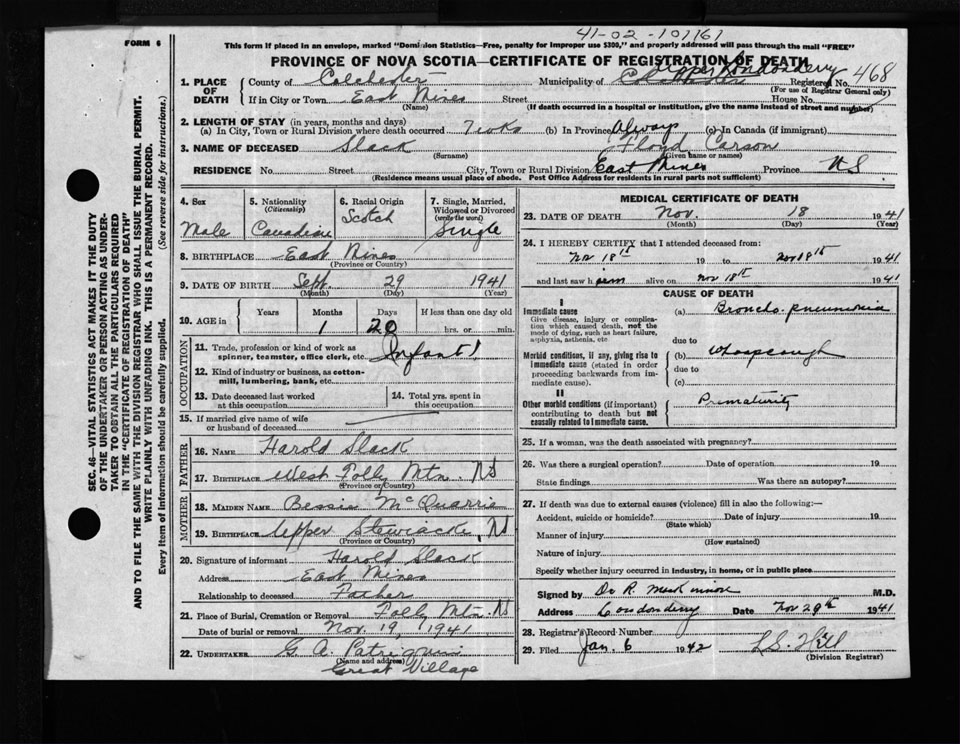 41-02-101161
FORM 6
This form if placed in an envelope, marked "Dominion Statistics—Free, penalty for improper use $300," and properly addressed will pass through the mail "FREE"
PROVINCE OF NOVA SCOTIA—CERTIFICATE OF REGISTRATION OF DEATH
1. PLACE OF DEATH
County of Colchester Municipality of Colchester Upper Londonderry Registered No. 468
(For use of Registrar General only)
If in City or Town East Mines Street House No.
(Name) (If death occurred in a hospital or institution, give the name instead of street and number)
2. LENGTH OF STAY (in years, months and days)
(a) In City, Town or Rural Division where death occurred 7 wks (b) In Province Always (c) In Canada (if immigrant)
3. NAME OF DECEASED Slack Floyd Carson
(Surname) (Given name or names)
RESIDENCE No. Street City, Town or Rural Division East Mines Province NS
(Residence means usual place of abode. Post Office Address for residents in rural parts not sufficient)
4. Sex
Male
5. Nationality
(Citizenship)
Canadian
6. Racial Origin
Scotch
7. Single, Married,
Widowed or Divorced
(write the word)
Single
8. BIRTHPLACE East Mines
(Province or Country)
9. DATE OF BIRTH Sept. 29 1941
(Month) (Day) (Year)
10. AGE in
Years Months Days If less than one day old
1 20 hrs. or min.
OCCUPATION
11. Trade, profession or kind of work as
spinner, teamster, office clerk, etc. Infant
12. Kind of industry or business, as cotton-
mill, lumbering, bank, etc.
13. Date deceased last worked
at this occupation
14. Total yrs. spent in
this occupation
15. If married give name of wife
or husband of deceased
FATHER
16. NAME Harold Slack
17. BIRTHPLACE West Folly Mtn. NS
(Province or Country)
MOTHER
18. MAIDEN NAME Bessie McQuarrie
19. BIRTHPLACE Upper Stewiacke, NS
(Province or Country)
20. Signature of informant Harold Slack
Address East Mines
Relationship to deceased Father
21. Place of Burial, Cremation or Removal Folly Mtn. NS
Date of burial or removal Nov. 19, 1941
22. UNDERTAKER G A. Patriquin
(Name and address)
Great Village
MEDICAL CERTIFICATE OF DEATH
23. DATE OF DEATH Nov. 18 1941
(Month) (Day) (Year)
24. I HEREBY CERTIFY that I attended deceased from:
Nov 18th 19 to Nov 18th 1941
and last saw h im alive on Nov 18th 1941
CAUSE OF DEATH
I
Immediate cause
Give disease, injury or complica-
tion which caused death, not the
mode of dying, such as heart failure,
asphyxia, asthenia, etc.
(a) Broncho-pneumonia
due to
Morbid conditions, if any, giving rise to
immediate cause (stated in order
proceeding backwards from im-
mediate cause).
(b) Whoopcough
due to
(c)
II
Other morbid conditions (if important)
contributing to death but not
causally related to immediate cause.
Prematurity
25. If a woman, was the death associated with pregnancy?
26. Was there a surgical operation? Date of operation 19
State findings Was there an autopsy?
27. If death was due to external causes (violence) fill in also the following:—
Accident, suicide or homicide? Date of injury 19
(State which)
Manner of injury
(How sustained)
Nature of injury
Specify whether injury occurred in industry, in home, or in public place
Signed by Dr R. M.D.
Address Londonderry Date Nov 29th 1941
28. Registrar's Record Number
29. Filed Jan. 6 1942 L S. Hill
(Division Registrar)
SEC. 46—VITAL STATISTICS ACT MAKES IT THE DUTY
OF THE UNDERTAKER OR PERSON ACTING AS UNDER-
TAKER TO OBTAIN ALL THE PARTICULARS REQUIRED
IN THE "CERTIFICATE OF REGISTRATION OF DEATH"
AND TO FILE THE SAME WITH THE DIVISION REGISTRAR WHO SHALL ISSUE THE BURIAL PERMIT.
WRITE PLAINLY WITH UNFADING INK. THIS IS A PERMANENT RECORD.
Every item of information should be carefully supplied. (See reverse side for instructions.)